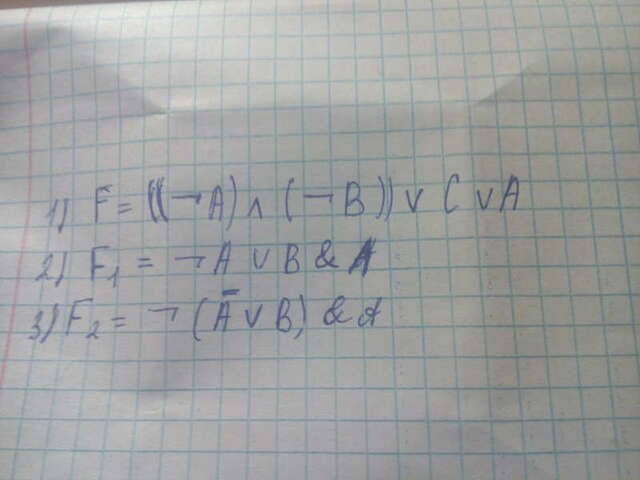 1) F = (((¬A) ∧ (¬B)) ∨ C ∨ A
2) F₁ = ¬A ∨ B & A
3) F₂ = ¬(Ā ∨ B) & A